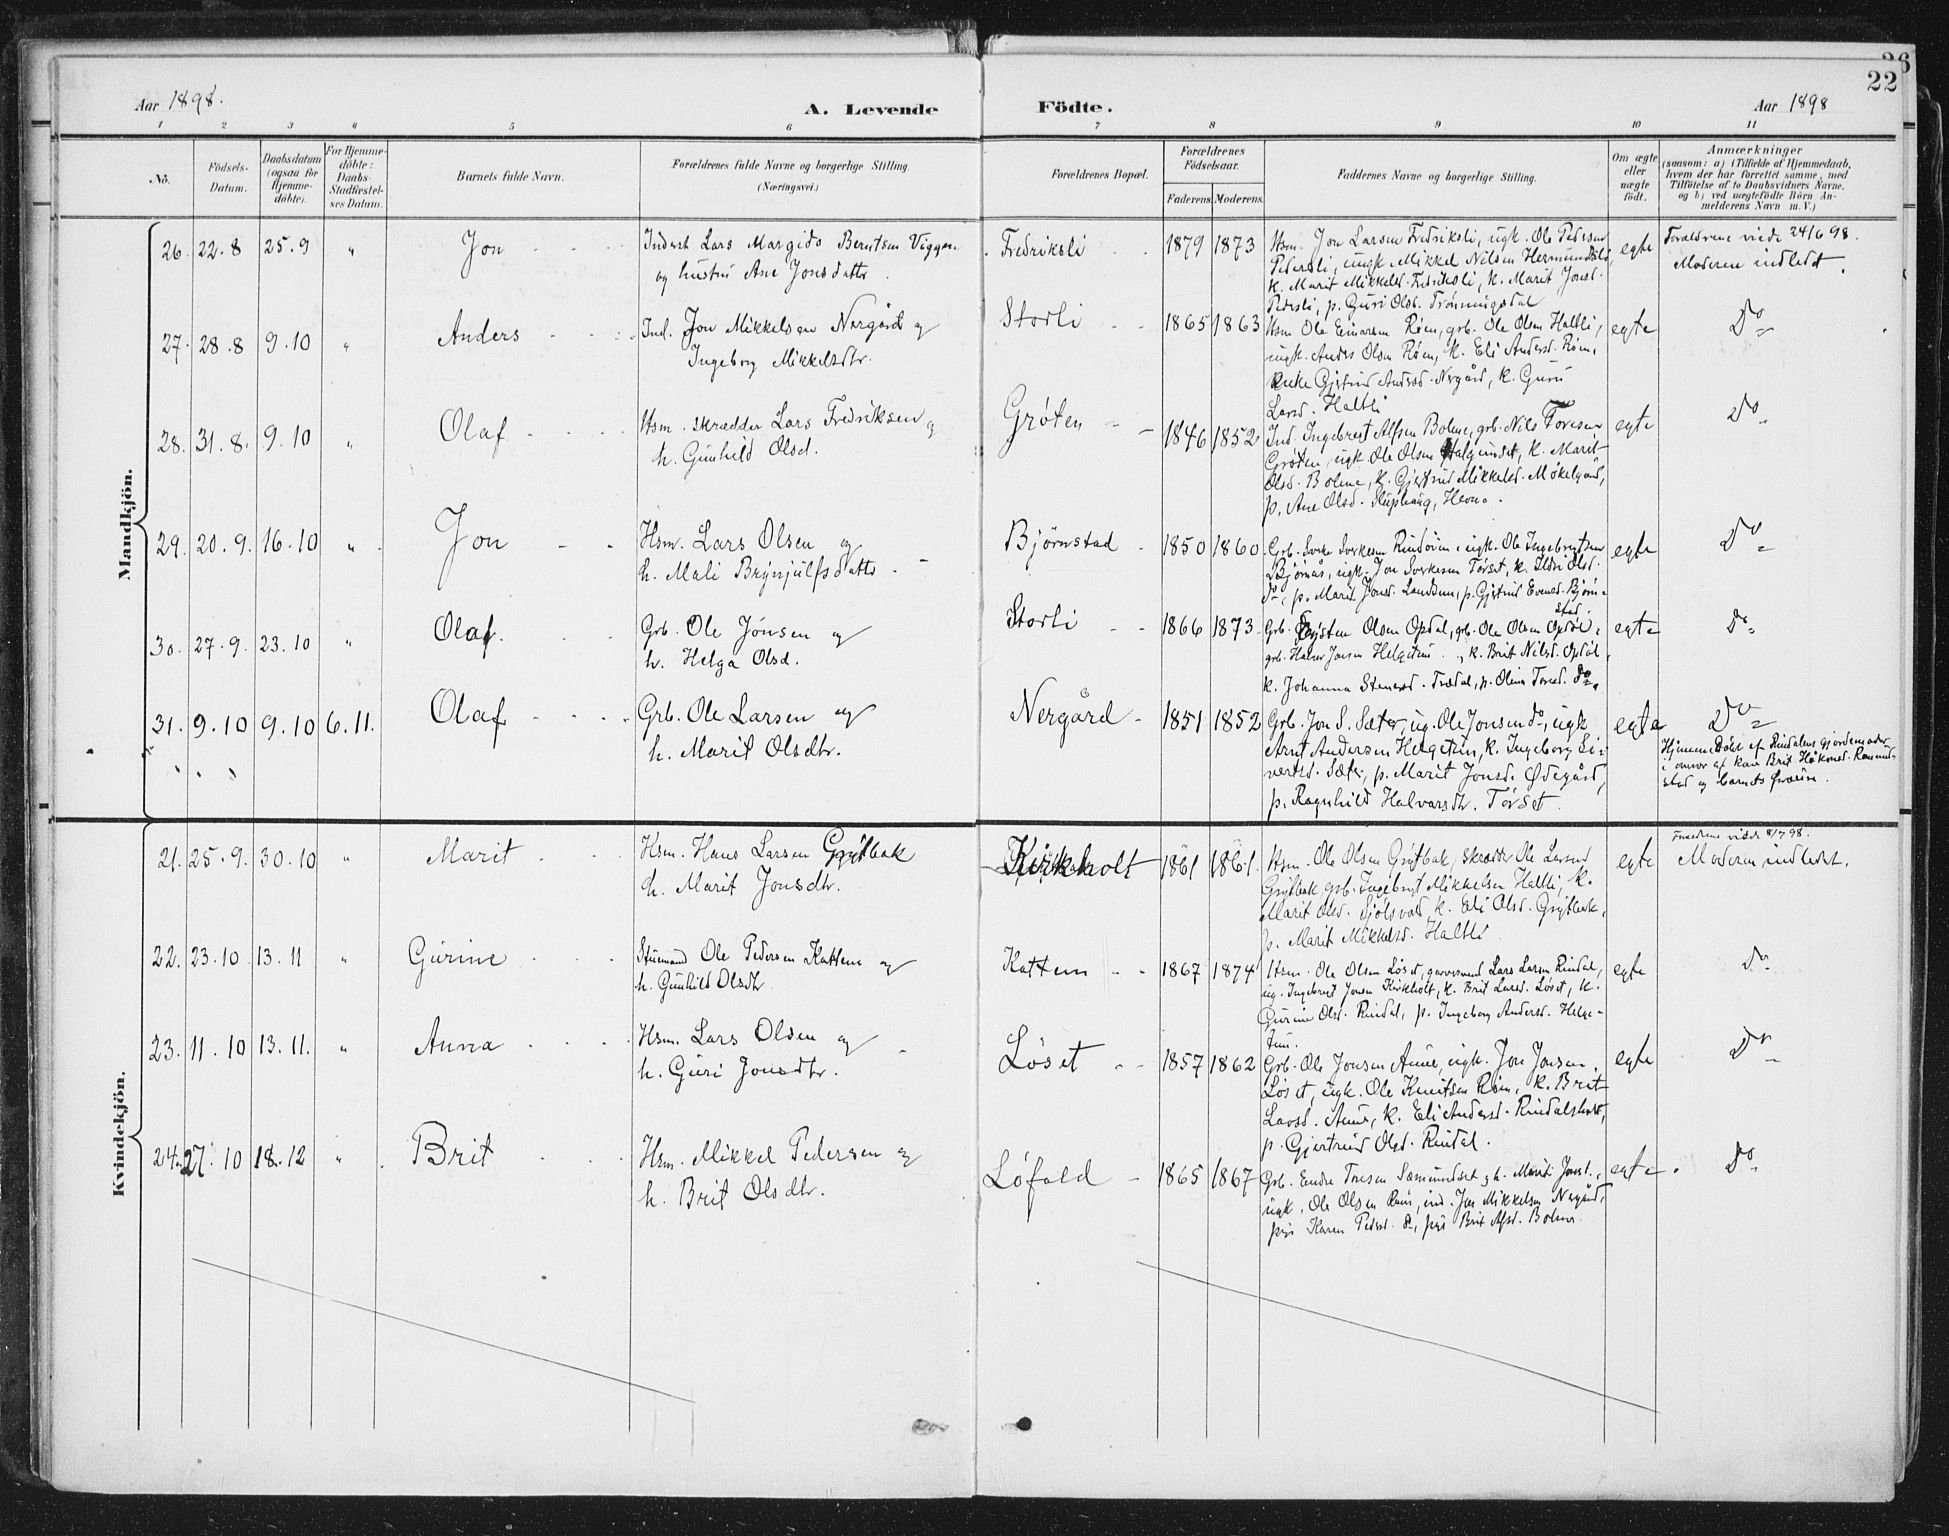 26
22
Aar 1898.
A. Levende
Födte.
Aar 1898
1 2 3 4 5 6 7 8 9 10 11
No.
Födsels-Datum.
Daabsdatum (ogsaa for Hjemme-döbte).
For Hjemme-döbte: Daabs-Stadfæstel-ses Datum.
Barnets fulde Navn.
Forældrenes fulde Navne og borgerlige Stilling.
(Næringsvei.)
Forældrenes Bopæl.
Forældrenes Födselsaar.
Faderens. Moderens.
Faddernes Navne og borgerlige Stilling.
Om ægte eller uægte födt.
Anmærkninger
(saasom: a) i Tilfælde af Hjemmedaab,
hvem der har forrettet samme, med
Tilföielse af to Daabsvidners Navne,
og b) ved uægtefödte Börn An-
melderens Navn m. V.)
Mandkjön.
26. 22.8 25.9 " Jon
Inderst Lars Margido Berntsen Viggen
og hustru Ane Jonsdatter
Fredriksli 1879 1873
Hsm. Jon Larsen Fredriksli, ugk. Ole Pedersen
Pedersli, ungk Mikkel Nilsen Hermundsli
k. Marit Mikkelsd. Fredriksli, k. Marit Jonsd.
Pedersli, p. Guri Olsd. Trønningsdal
egte
Forældrene viede 24/6 98.
Moderen indledt.
27. 28.8 9.10 " Anders
Ind. Jon Mikkelsen Nergård og
Ingeborg Mikkelsdtr.
Storli 1865 1863
Hsm Ole Einarsen Røen, grb. Ole Olsen Haltli,
ungk. Anders Olsen Røen, k. Eli Andersd. Røen,
enke Gjertrud Andersd. Nergård, k. Guru
Larsd. Haltli
egte Do
28. 31.8. 9.10 " Olaf
Hsm. skrædder Lars Fredriksen og
h. Gunhild Olsd.
Grøten 1846 1852
Ind. Ingebregt Alfsen Bolme, grb. Nils Toresen
Grøten, ugk Ole Olsen Halgunset, k. Marit
Olsd. Bolme, k. Gjertrud Mikkelsd. Møkelgård,
p. Ane Olsd.
egte Do
29. 20.9. 16.10 " Jon
Hsm. Lars Olsen og
h. Mali Brynjulfsdatter
Bjørnstad 1850 1860
Grb. Sverke Sverkesen Rindøien, ugk. Ole Ingebregtsen
Bjørnås, ugk. Jon Sverkesen Tørset, k. Olsd.
do, p. Marit Jonsd. Landsem, p. Gjertrud Evensd. Bjørn-
stad.
egte Do
30. 27.9. 23.10 " Olaf.
Grb. Ole Jonsen og
h. Helga Olsd.
Storli 1866 1873
Grb. Øysten Olsen Opdal, grb. Ole Olsen Opdøl,
grb. Halvor Jonsen Helgetun, k. Brit Nilsd. Opdøl,
k. Johanna Stenersd. Trædal, p. Olina Toresd. Do
egte Do
31. 9.10 9.10 6.11. Olaf
Grb. Ole Larsen og
h. Marit Olsdtr.
Nergård 1851 1852
Grb. Jon S. Sæter, ug. Ole Jonsen do, ugk
Arnt Andersen Helgetun, k. Ingeborg Si-
vertsd. Sæter, p. Marit Jonsd. Ødegård,
p. Ragnhild Halvorsdtr. Tørset.
egte Do
Hjemmedøbt af Rindalens gjordemoder
i nærvær af kone Brit Håkonsd. Romund-
stad og barnets forældre.
Kvindekjön.
21. 25.9. 30.10 " Marit
Hsm. Hans Larsen Grytbak
h. Marit Jonsdtr.
Kirkholt 1861 1861
Hsm. Ole Olsen Grytbak, skrædder Ole Larsen
Grytbak, grb. Ingebregt Mikkelsen Haltli, k.
Marit Olsd. Sjølsvold, k. Eli Olsd. Grytbak,
p. Marit Mikkelsd. Haltli
egte
Forældrene viede 8/7 98.
Moderen indledet.
22. 23.10 13.11 " Gurine
Stuemand Ole Pedersen Kattem og
h. Gunhild Olsdtr
Kattem 1867 1874
Hsm. Ole Olsen Løset, garversvend Lars Larsen Rindal,
ug. Ingebregt Jonsen Kirkholt, k. Brit Larsd. Løset, k.
Gurine Olsd. Rindal, p. Ingeborg Andersd. Helge-
tun.
egte Do
23. 11.10 13.11. " Anna
Hsm. Lars Olsen og
h. Guri Jonsdtr.
Løset 1857 1862
Grb. Ole Jonsen Aune, ugk. Jon Jonsen
Løset, ugk. Ole Knutsen Røen, k. Brit
Larsd. Aune, k. Eli Andersd. Rindalsholt,
p. Gjertrud Olsd. Rindal.
egte Do
24. 27.10 18.12 " Brit
Hsm. Mikkel Pedersen og
h. Brit Olsdtr.
Løfald 1865 1867
Grb. Endre Toresen Sæmundset og h. Marit Jonsd.,
ugk. Ole Olsen Røen, ind. Jon Mikkelsen Nergård,
pige Karen Pedersd. do, pige Brit Alfsd. Bolme.
egte. Do